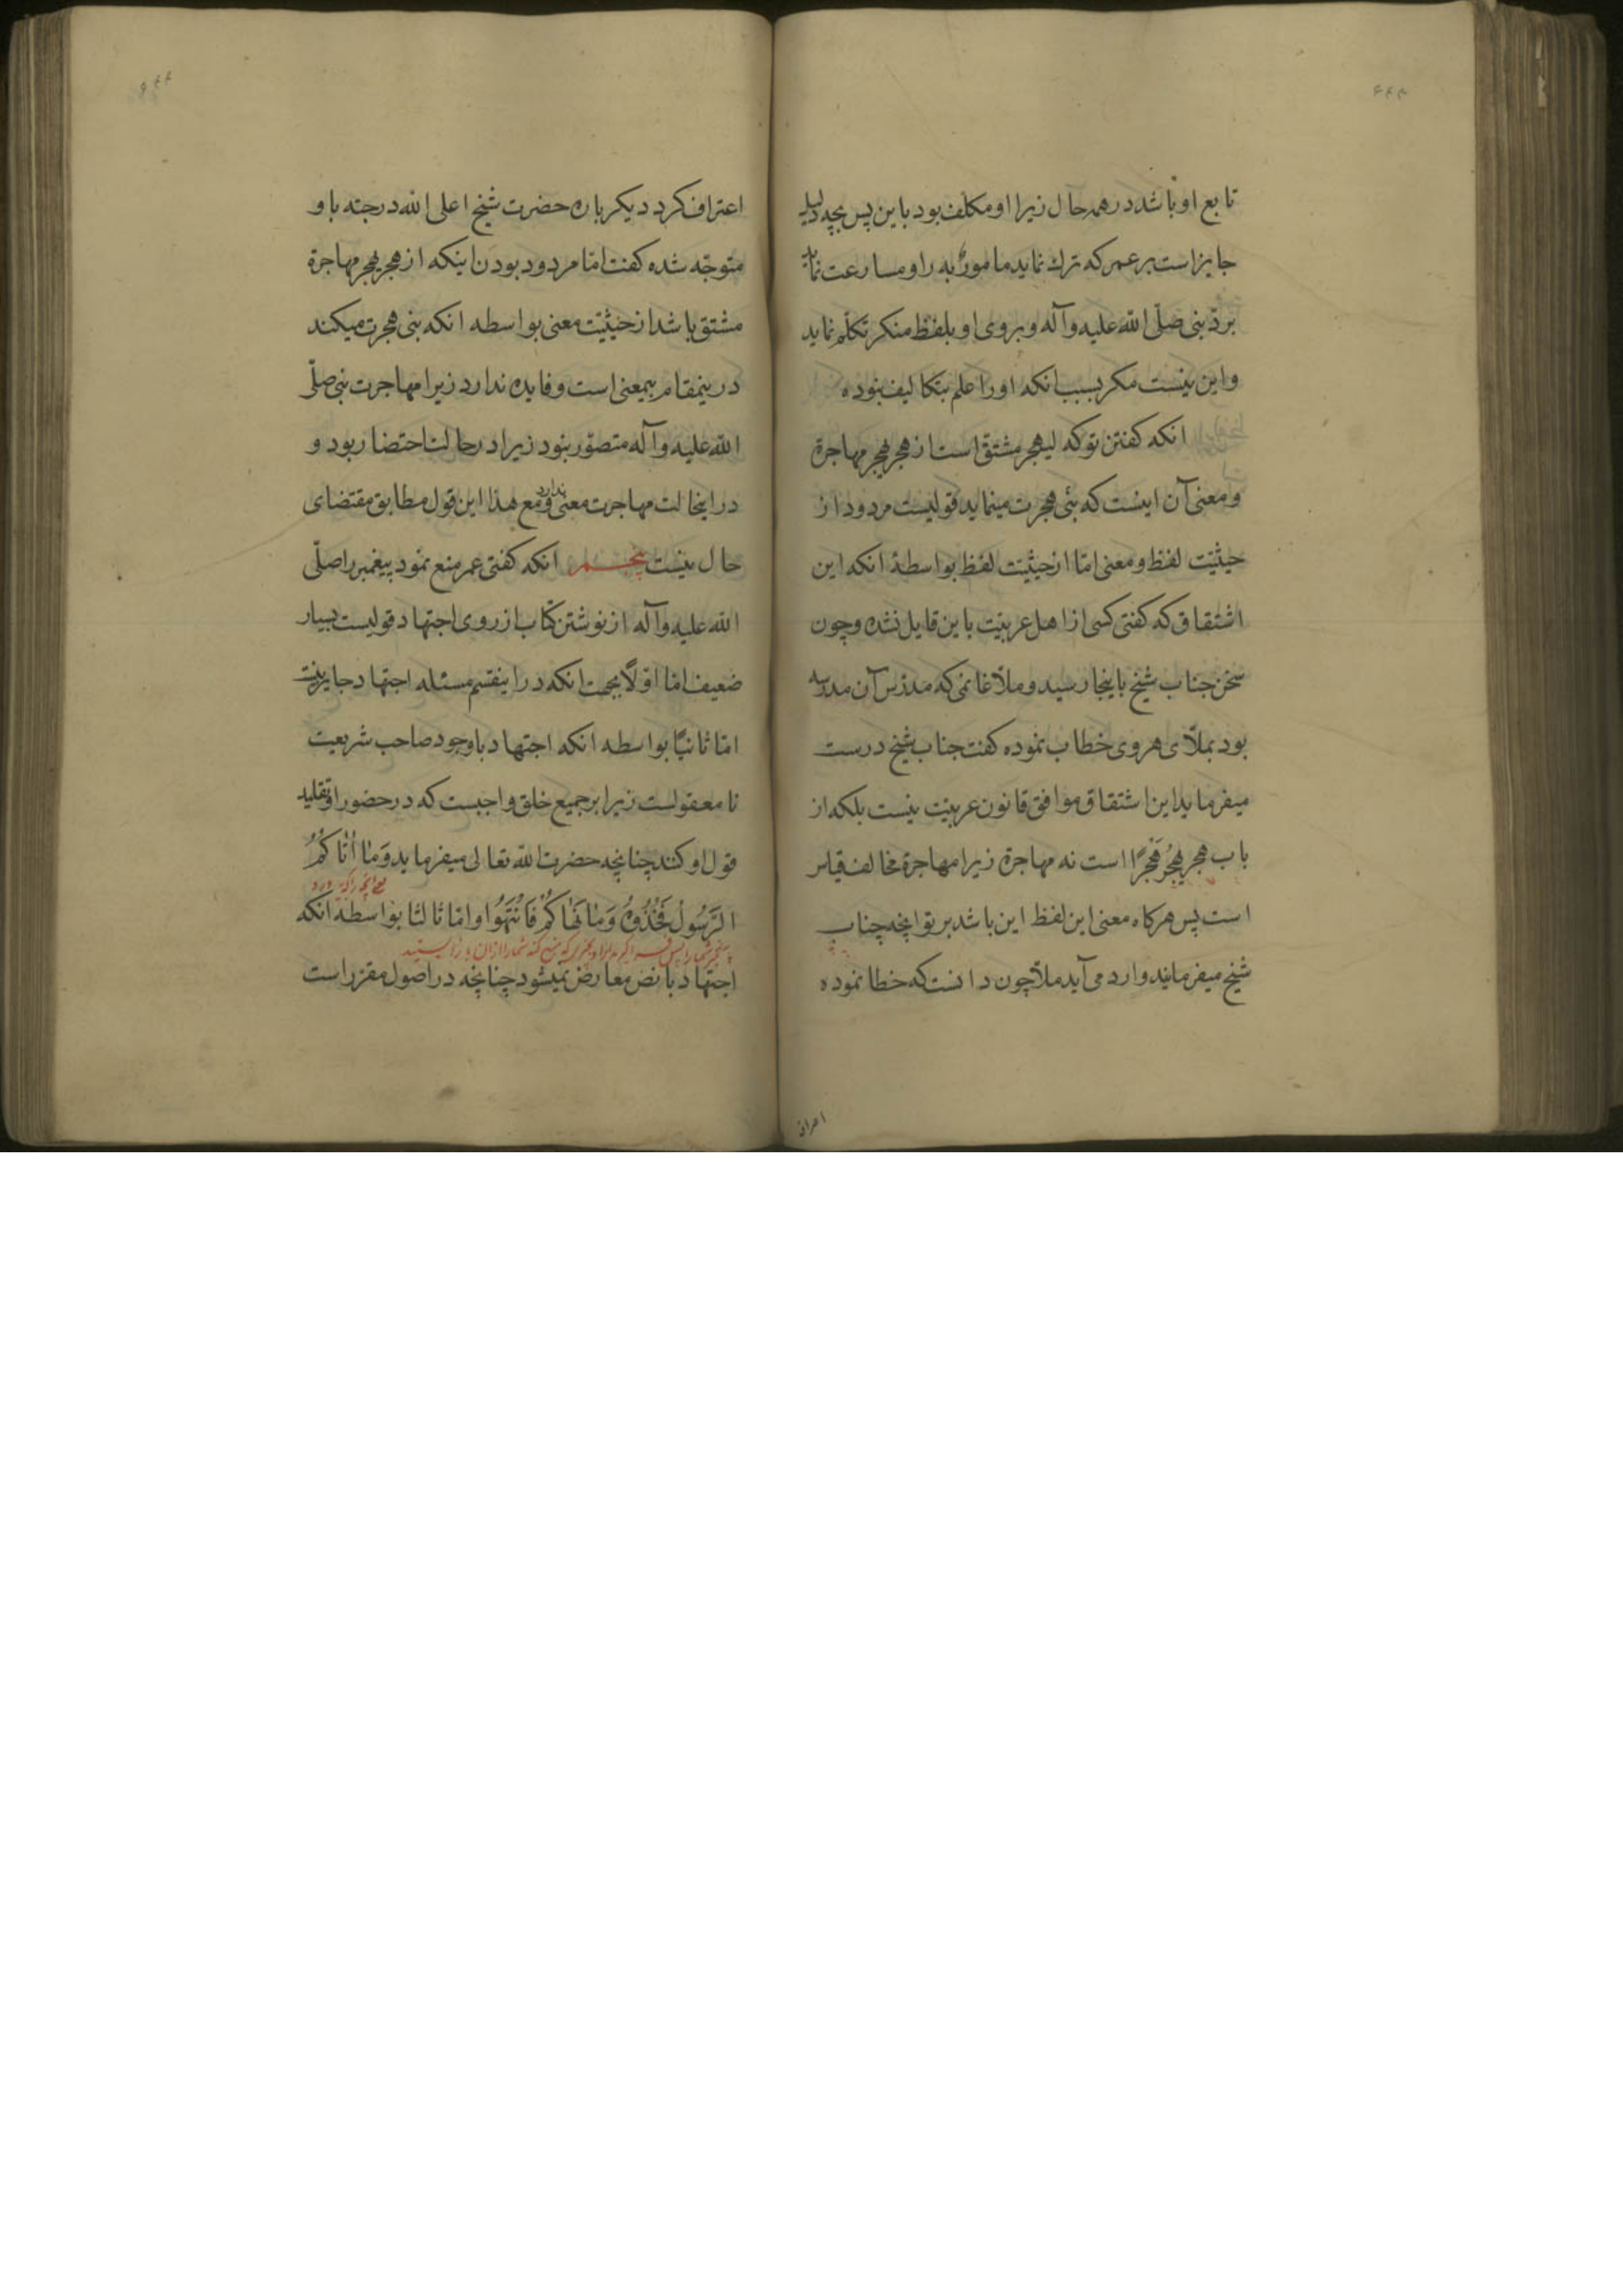 تابع او باشد در همه حال زیرا او مکلف بود باین پس بچه دلیل
جایز است بر عمر که ترک نماید مامورٌ به را و مسارعت نماید
بردّ نبی صلّی اللّه علیه و آله و بروی او بلفظ منکر تکلّم نماید
و این نیست مکر بسبب انکه او را علم بتکالیف نبوده
انکه کفتن تو که لیهجر مشتق است از هجر یهجر مهاجرة
و معنی آن اینست که نبی هجرت مینماید قولیست مردود از
حیثیّت لفظ و معنی امّا از حیثیّت لفظ بواسطهٔ انکه این
اشتقاق که کفتی کسی از اهل عربیّت باین قایل نشده و چون
سخن جناب شیخ باینجا رسید و ملّا غانمی که مدرّس آن مدرسه
بود بملّای هروی خطاب نموده کفت جناب شیخ درست
میفرماید این اشتقاق موافق قانون عربیّت نیست بلکه از
باب هجر یَهجُر هَجْرًا است نه مهاجرة زیرا مهاجرة مخالف قیاس
است پس هرکاه معنی این لفظ این باشد بر تو انچه جناب
شیخ میفرمایند وارد می آید ملّا چون دانست که خطا نموده
اعتراف
اعتراف کرد دیکر باره حضرت شیخ اعلی اللّه درجته باو
متوجّه شده کفت امّا مردود بودن اینکه از هجر یهجر مهاجرة
مشتق باشد از حیثیّت معنی بواسطه انکه نبی هجرت میکند
درینمقام بیمعنی است و فایده ندارد زیرا مهاجرت نبی صلّی
اللّه علیه و آله متصوّر نبود زیرا در حالت احتضار بود و
در اینحالت مهاجرت معنی ندارد و مع هذا این قول مطابق مقتضای
حال نیست پنجم انکه کفتی عمر منع نمود پیغمبر را صلّی
اللّه علیه و آله از نوشتن کتاب از روی اجتهاد قولیست بسیار
ضعیف امّا اوّلًا بجهت انکه در اینقسم مسئله اجتهاد جایز نیست
امّا ثانیًا بواسطه انکه اجتهاد با وجود صاحب شریعت
نامعقولست زیرا بر جمیع خلق واجبست که در حضور او تقلید
قول او کنند چنانچه حضرت اللّه تعالی میفرماید وَمٰا اٰتٰاکُمُ
الرَّسُولُ فَخُذُوهُ وَمٰا نَهٰاکُمْ فَانْتَهُوا و امّا ثالثا بواسطه انکه
اجتهاد با نص معارض نمیشود چنانچه در اصول مقرّر است